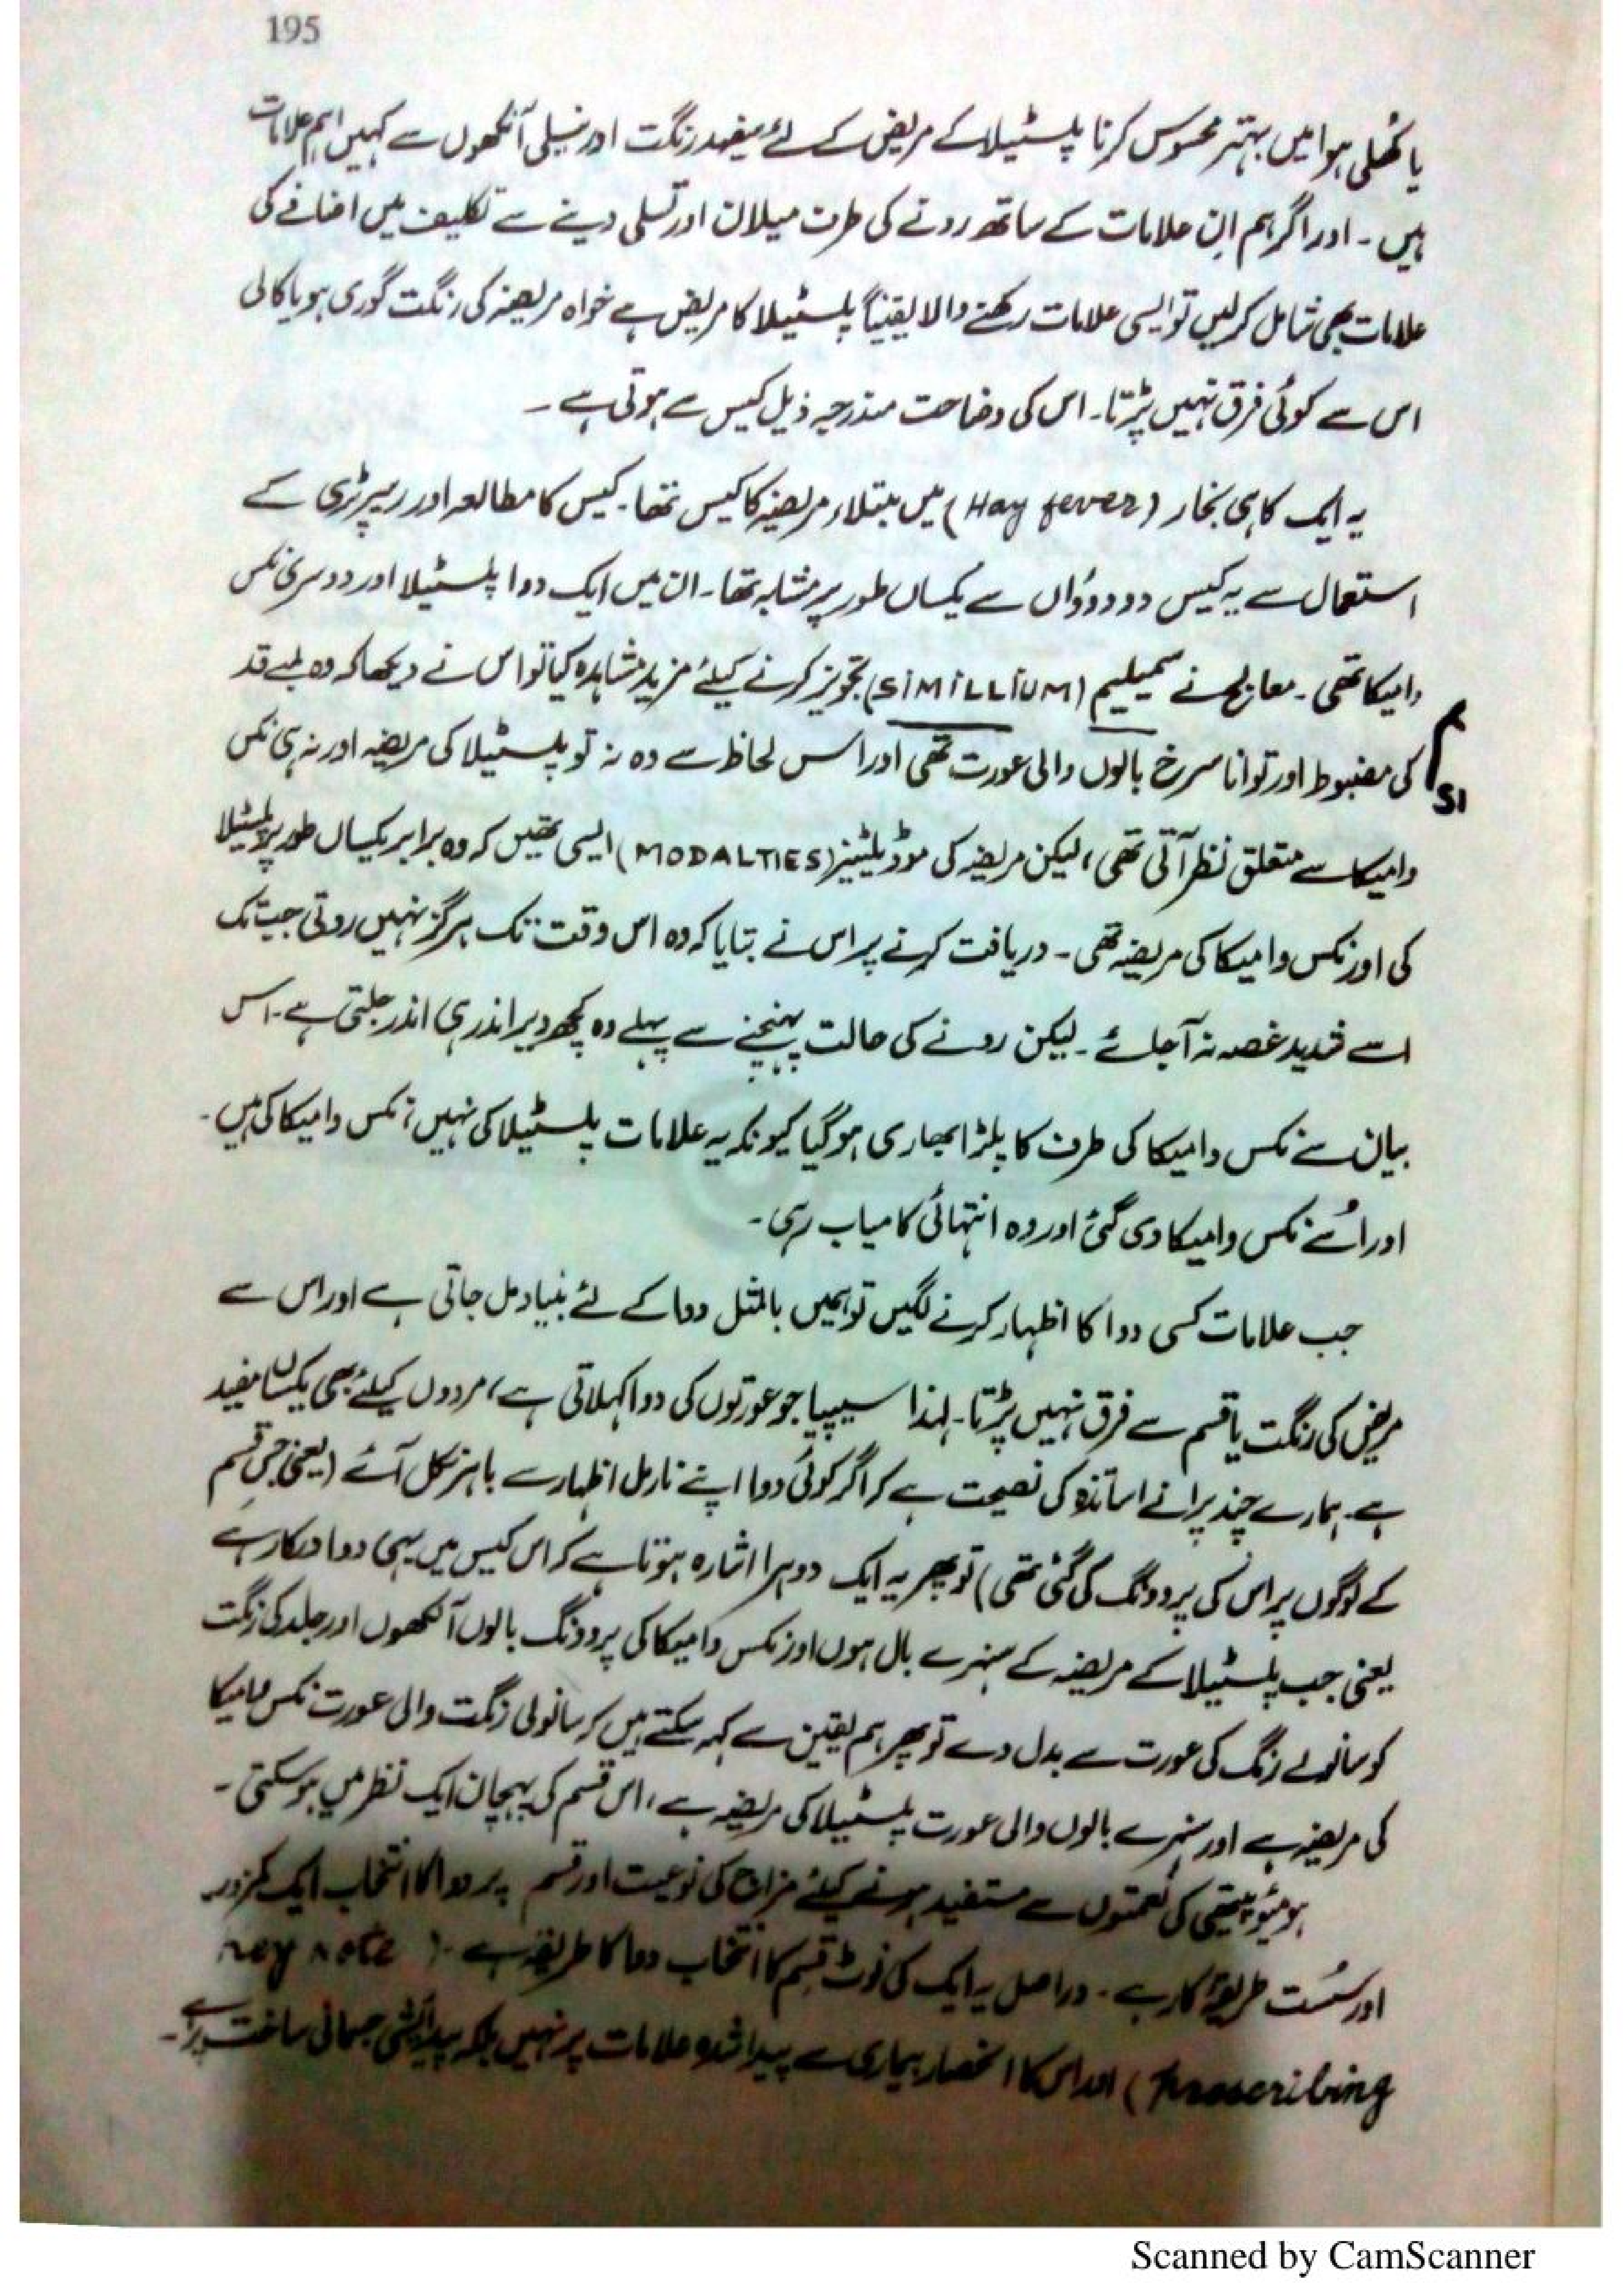 195
یا کھلی ہوا میں بہتر محسوس کرنا پلسٹیلا کے مریض کے لئے سفید رنگت اور نیلی آنکھوں سے کہیں اہم علامات
ہیں ۔ اور اگر ہم ان علامات کے ساتھ رونے کی طرف میلان اور تسلی دینے سے تکلیف میں اضافے کی
علامات بھی شامل کر لیں تو ایسی علامات رکھنے والا یقیناً پلسٹیلا کا مریض ہے خواہ مریضہ کی رنگت گوری ہو یا کالی
اس سے کوئی فرق نہیں پڑتا ۔ اس کی وضاحت مندرجہ ذیل کیس سے ہوتی ہے ۔
یہ ایک کاہی بخار (Hay fever) میں مبتلاء مریضہ کا کیس تھا ۔ کیس کا مطالعہ اور ریپرٹری کے
استعمال سے یہ کیس دو دوؤاں سے یکساں طور پر مشابہ تھا ۔ ان میں ایک دوا پلسٹیلا اور دوسری نکس
وامیکا تھی ۔ معالج نے سمیلیم (SiMiLLiUM) تجویز کرنے کیلئے مزید مشاہدہ کیا تو اس نے دیکھا کہ وہ لمبے قد
کی مضبوط اور توانا سرخ بالوں والی عورت تھی اور اس لحاظ سے وہ نہ تو پلسٹیلا کی مریضہ اور نہ ہی نکس
وامیکا سے متعلق نظر آتی تھی ، لیکن مریضہ کی موڈیلیٹیز (MODALTIES) ایسی تھیں کہ وہ برابر یکساں طور پر پلسٹیلا
کی اور نکس وامیکا کی مریضہ تھی ۔ دریافت کرنے پر اس نے بتایا کہ وہ اس وقت تک ہرگز نہیں روتی جب تک
اسے شدید غصہ نہ آ جائے ۔ لیکن رونے کی حالت پہنچنے سے پہلے وہ کچھ دیر اندر ہی اندر جلتی ہے ۔ اس
بیان سے نکس وامیکا کی طرف کا پلڑا بھاری ہو گیا کیونکہ یہ علامات پلسٹیلا کی نہیں ؛ نکس وامیکا کی ہیں ۔
اور اُسے نکس وامیکا دی گئی اور وہ انتہائی کامیاب رہی ۔
جب علامات کسی دوا کا اظہار کرنے لگیں تو ہمیں بالمثل دوا کے لئے بنیاد مل جاتی ہے اور اس سے
مریض کی رنگت یا قسم سے فرق نہیں پڑتا ۔ لہذا سیپیا جو عورتوں کی دوا کہلاتی ہے ، مردوں کیلئے بھی یکساں مفید
ہے ۔ ہمارے چند پرانے اساتذہ کی نصیحت ہے کہ اگر کوئی دوا اپنے نارمل اظہار سے باہر نکل آئے (یعنی جس قسم
کے لوگوں پر اس کی پرووِنگ کی گئی تھی) تو پھر یہ ایک دوہرا اشارہ ہوتا ہے کہ اس کیس میں یہی دوا درکار ہے
یعنی جب پلسٹیلا کے مریضہ کے سنہرے بال ہوں اور نکس وامیکا کی پرووِنگ بالوں آنکھوں اور جلد کی رنگت
کو سانولے رنگ کی عورت سے بدل دے تو پھر ہم یقین سے کہہ سکتے ہیں کہ سانولی رنگت والی عورت نکس وامیکا
کی مریضہ ہے اور سنہرے بالوں والی عورت پلسٹیلا کی مریضہ ہے ، اس قسم کی پہچان ایک نظر میں ہو سکتی ۔
ہومیوپیتھی کی نعمتوں سے مستفید ہونے کیلئے مزاج کی نوعیت اور قسم پر دوا کا انتخاب ایک کمزور
اور سُست طریقۂ کار ہے ۔ دراصل یہ ایک کی نوٹ قسم کا انتخاب دوا کا طریقہ ہے ۔ ( key note
prescribing ) اور اس کا انحصار بیماری سے پیدا شدہ علامات پر نہیں بلکہ پیدائشی جسمانی ساخت پر ہے ۔
Scanned by CamScanner